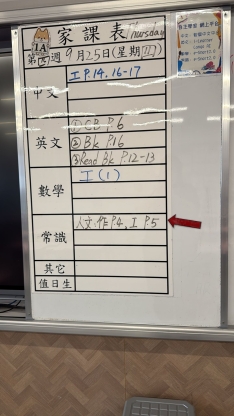 家課表
Thursday
1A
第四週 9月25日(星期四)
中文 工 P.14, 16-17
英文 ① CB P.6
② Bk P.16
③ Read Bk P.12-13
數學 工(1)
常識 人文:作 P.4, 工 P.5
其它
值日生